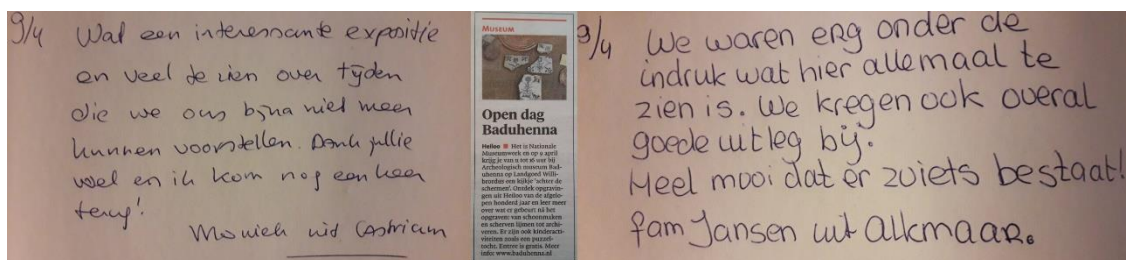 9/4 Wat een interessante expositie
en veel te zien over tijden
die we ons bijna niet meer
kunnen voorstellen. Dank jullie
wel en ik kom nog een keer
terug!
Moniek uit Castricum
MUSEUM
Open dag
Baduhenna
Heiloo Het is Nationale
Museumweek en op 9 april
krijg je van 11 tot 16 uur bij
Archeologisch museum Bad-
uhenna op Landgoed Willi-
brordus een kijkje 'achter de
schermen'. Ontdek opgravin-
gen uit Heiloo van de afgelo-
pen honderd jaar en leer meer
over wat er gebeurt ná het
opgraven: van schoonmaken
en scherven lijmen tot archi-
veren. Er zijn ook kinderacti-
viteiten zoals een puzzel-
tocht. Entree is gratis. Meer
info: www.baduhenna.nl
9/4 We waren erg onder de
indruk wat hier allemaal te
zien is. We kregen ook overal
goede uitleg bij.
Heel mooi dat er zoiets bestaat!
fam Jansen uit Alkmaar.